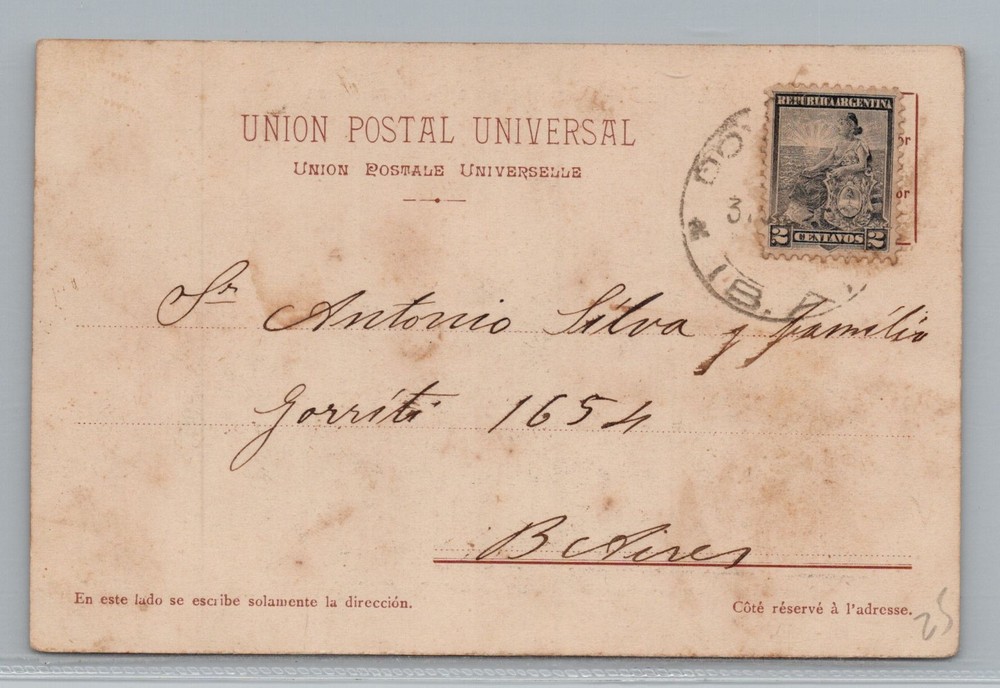 UNION POSTAL UNIVERSAL
UNION POSTALE UNIVERSELLE
REPÚBLICA ARGENTINA
2 CENTAVOS 2
or
or
Sr Antonio Silva y familia
Gorriti 1654
B Aires
En este lado se escribe solamente la dirección.
Côté réservé à l'adresse.
25